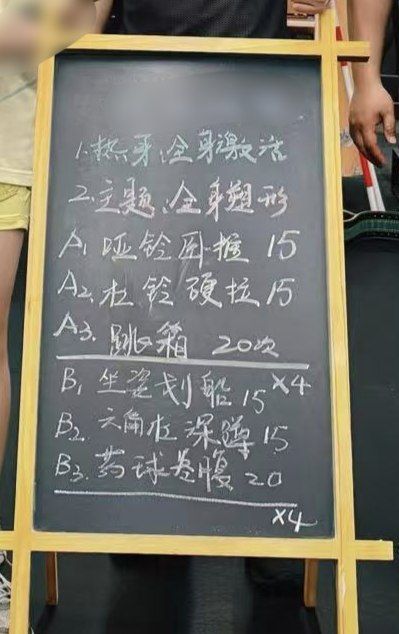 1.热身:全身激活
2.主题:全身塑形
A1.哑铃卧推 15
A2.杠铃硬拉 15
A3.跳箱 20次
×4
B1.坐姿划船 15
B2.六角杠深蹲 15
B3.药球卷腹 20
×4